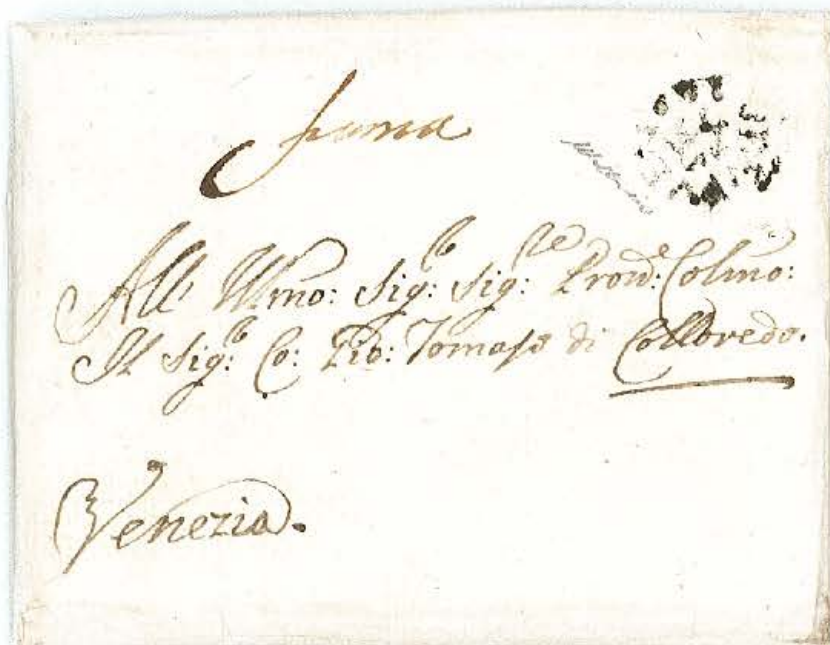 All' Illmo: Sig:r Sig:re Prone: Colmo:
Il Sig:r Co: Gio: Tomaso di Colloredo.
Venezia.